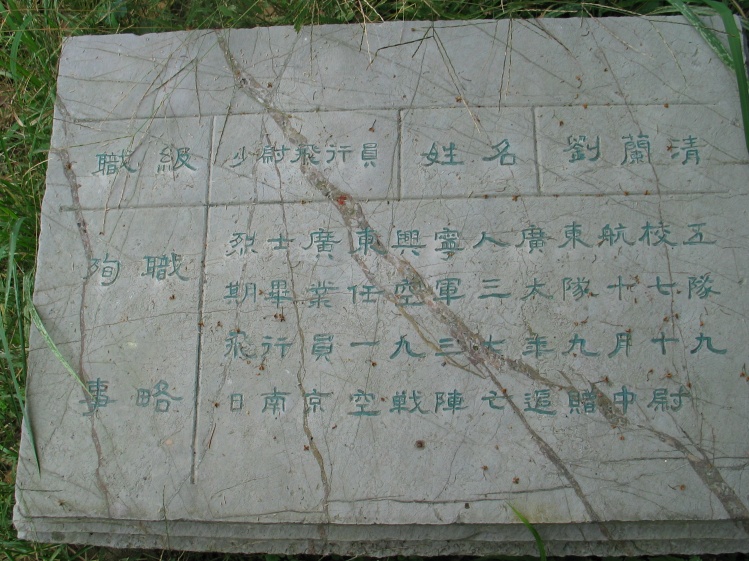 職級 少尉飛行員 姓名 劉蘭清
殉職事略
烈士廣東興寧人廣東航校五
期畢業任空軍三大隊十七隊
飛行員一九三七年九月十九
日南京空戦陣亡追贈中尉